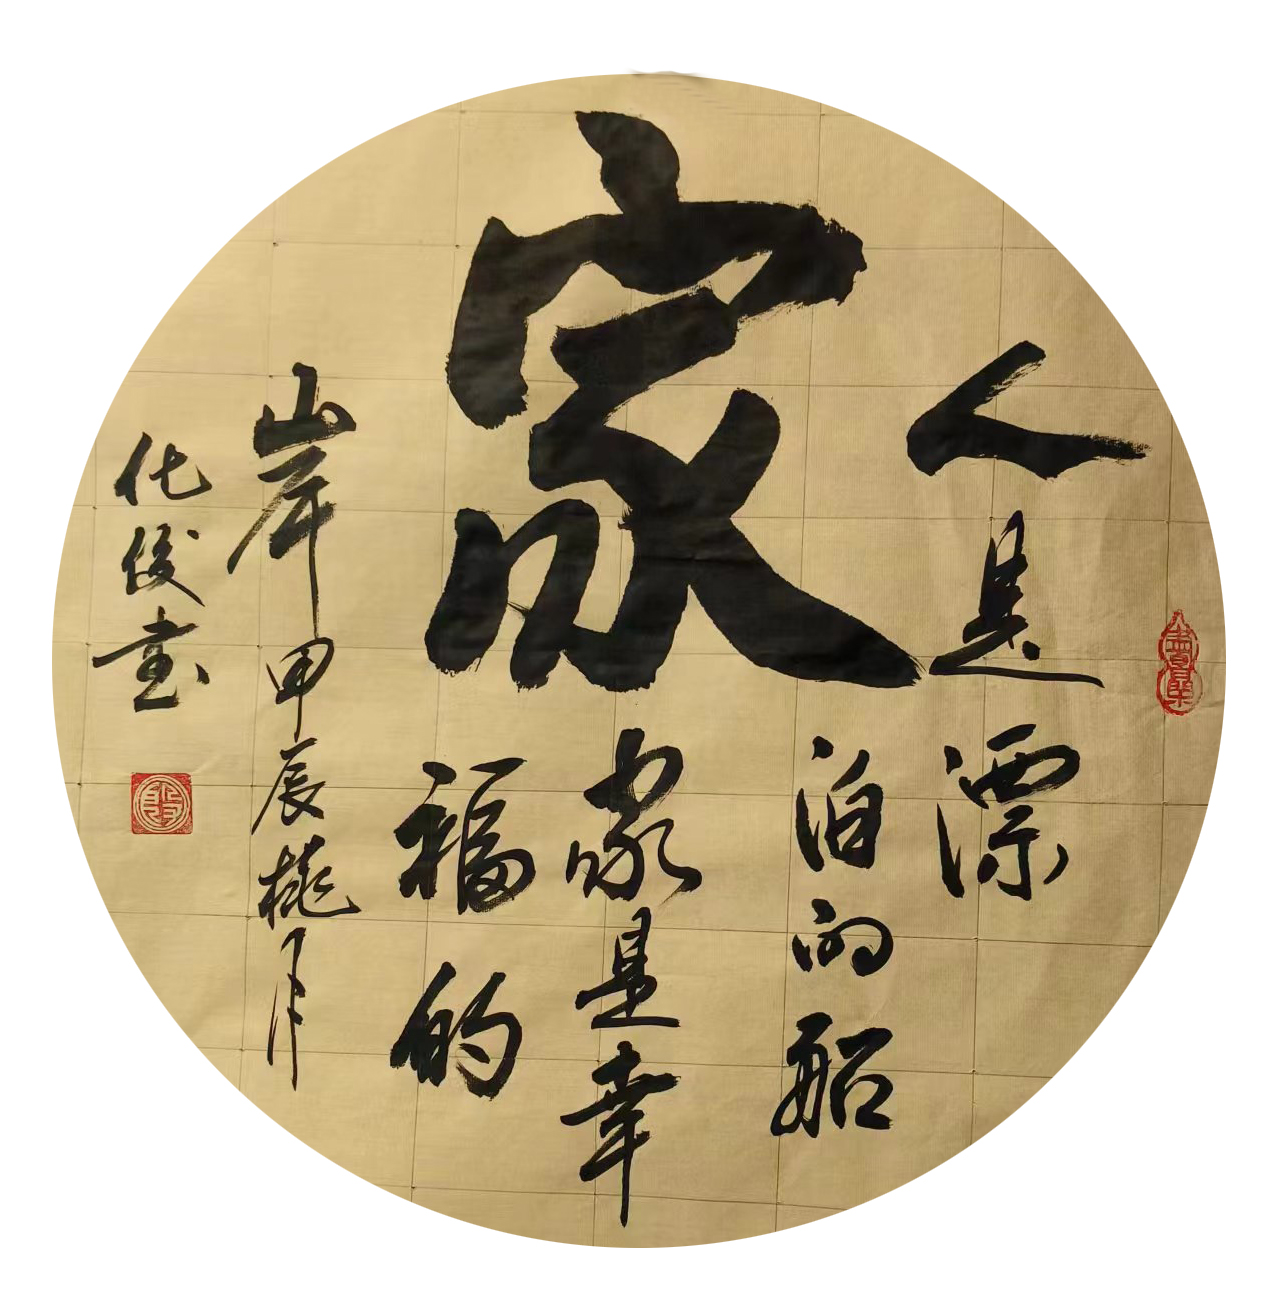 家
人是漂
泊的船
家是幸
福的
岸甲辰桃月
化俊书